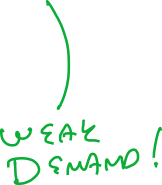 WEAK
DEMAND!